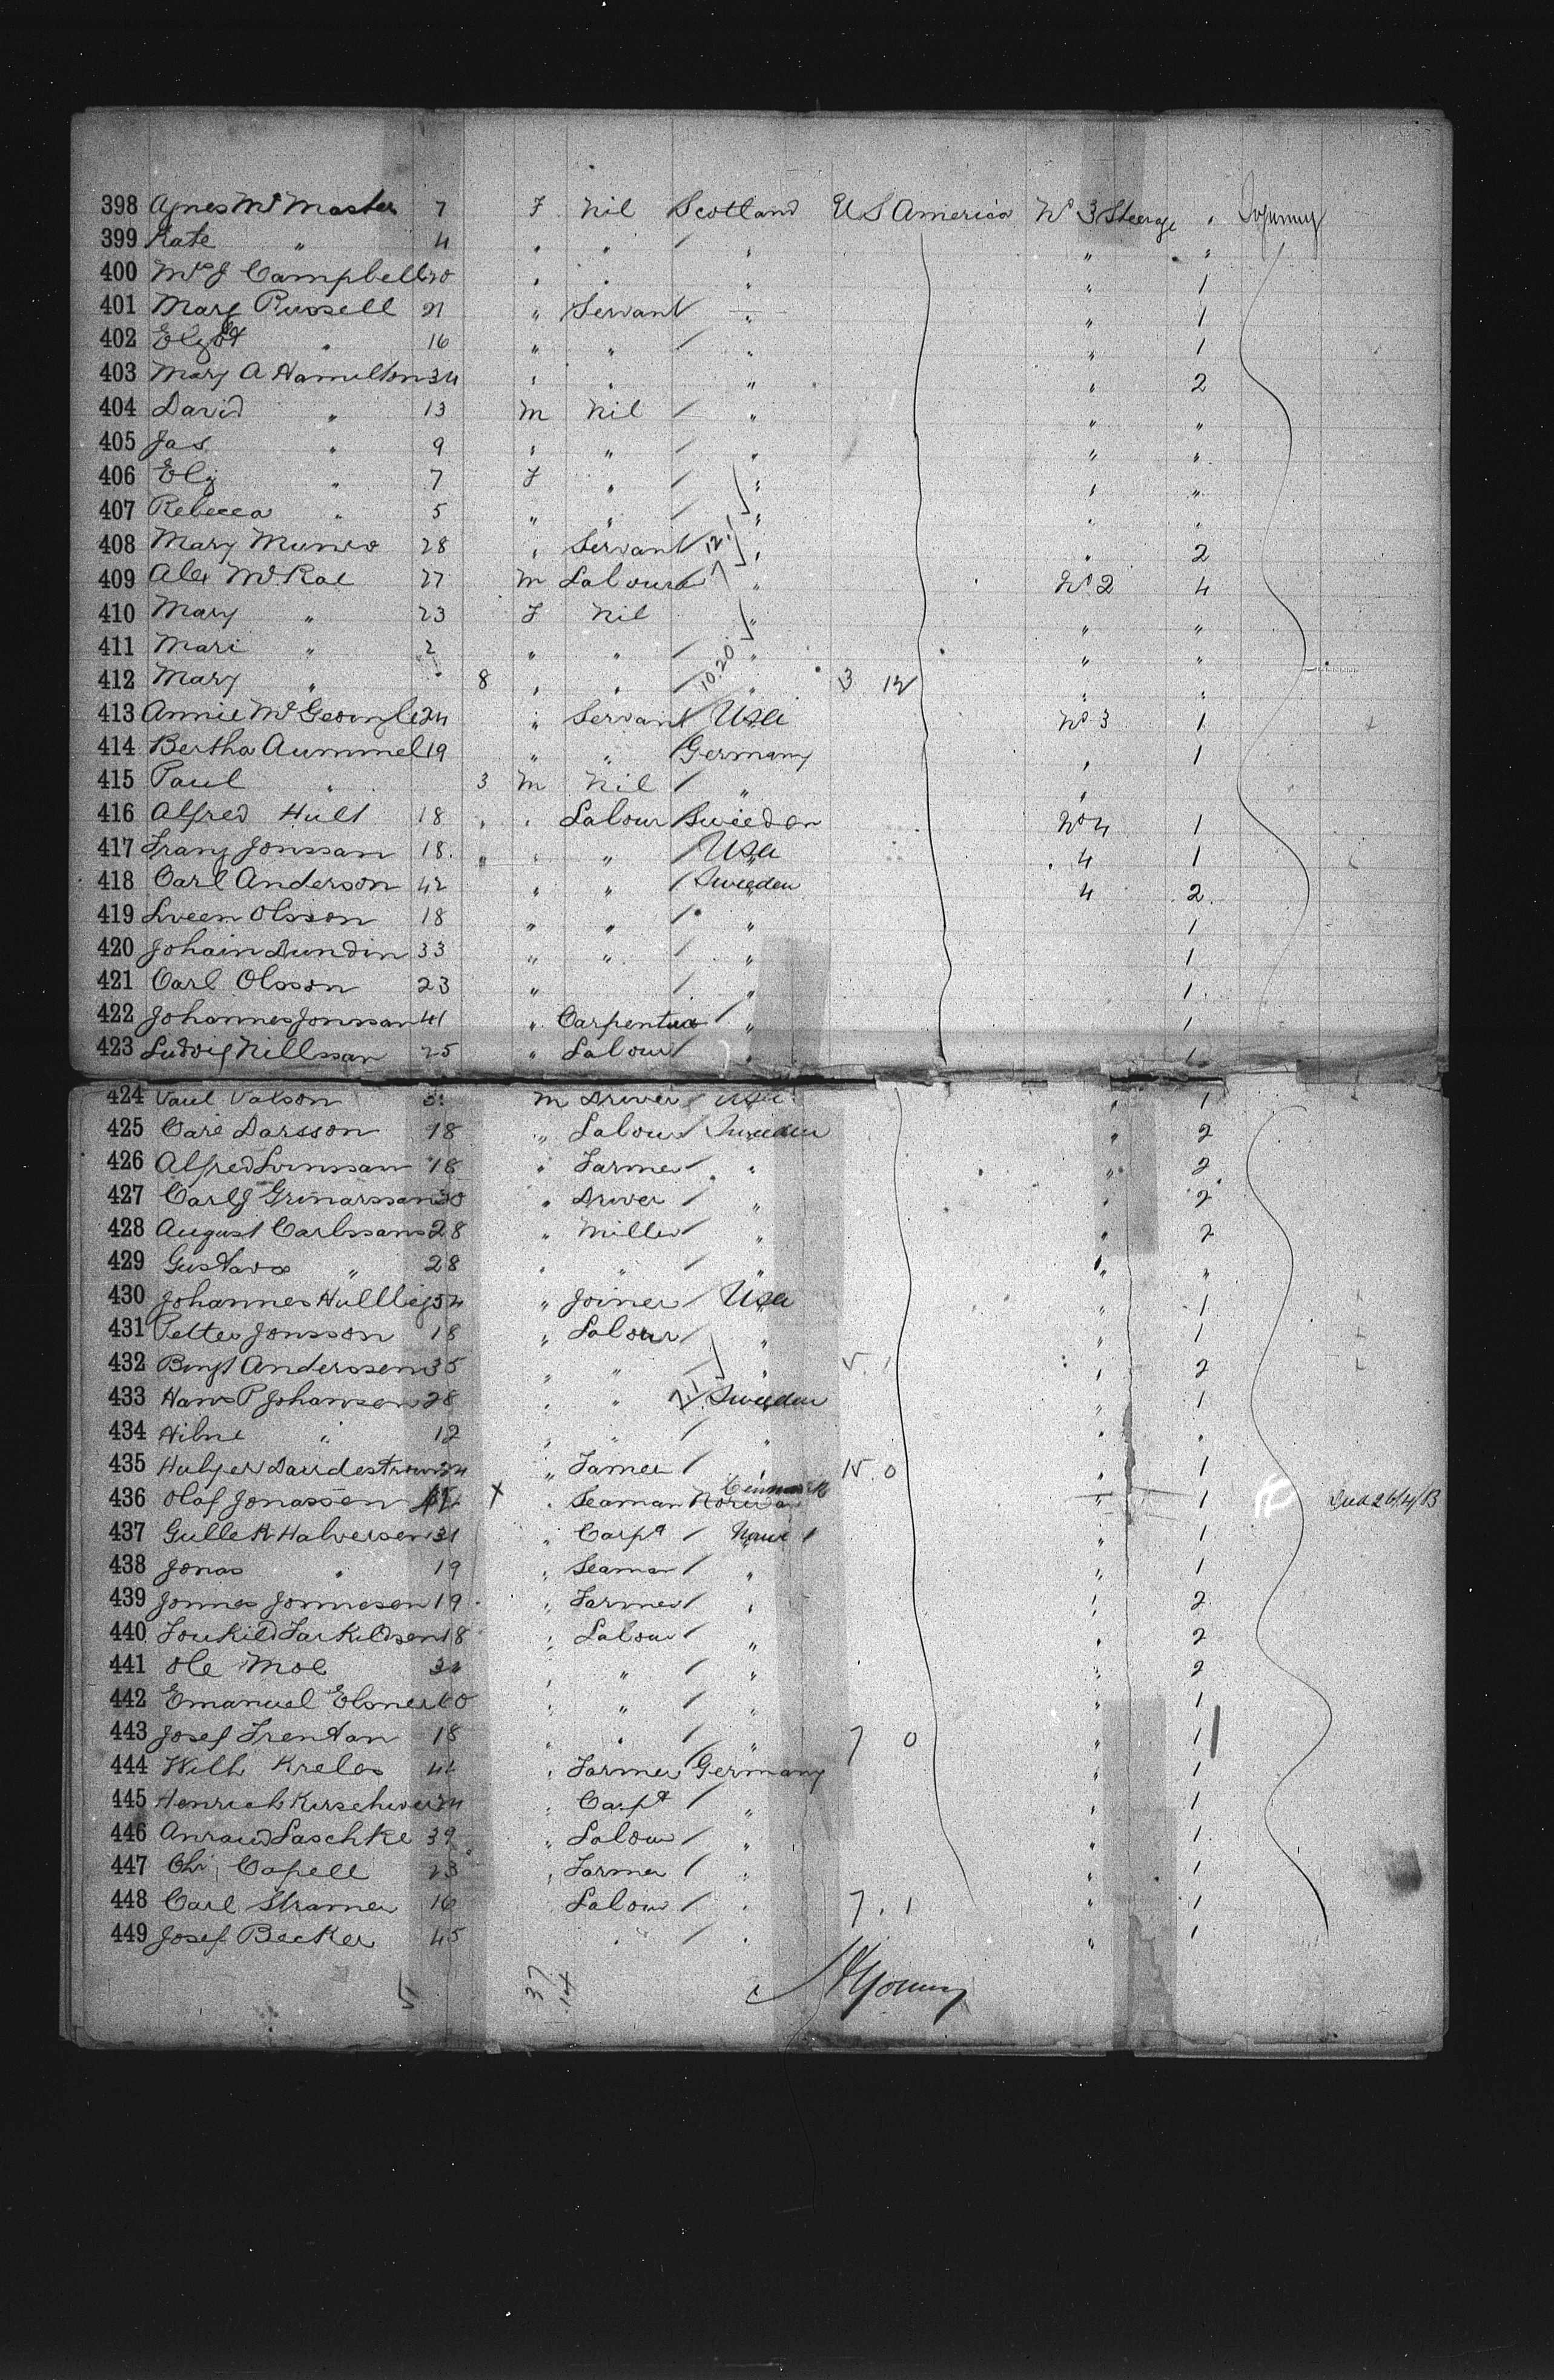 398 Agnes McMaster 7 F Nil Scotland U S America No 3 Steerage " Sojourning
399 Kate " 4 " " / " " "
400 Mrs J Campbell 20 " " " " 1
401 Mary Russell 21 " Servant / " " 1
402 Elizbt " 16 " " / " " 1
403 Mary A Hamilton 34 " " " " 2
404 David " 13 m Nil / " " "
405 Jas " 9 " " / " " "
406 Eliz " 7 F " / " " "
407 Rebecca " 5 " " / " " "
408 Mary Munro 28 " Servant / 12.1 " " 2
409 Alex McRae 27 m Labourer / " No 2 4
410 Mary " 23 F Nil " " "
411 Mari " 2 " " / " " "
412 Mary " 8 " " / 10.20 " 3 12 " "
413 Annie McGeoungle 24 " Servant / Usa No 3 1
414 Bertha Aummel 19 " " Germany " 1
415 Paul " 3 m Nil / " "
416 Alfred Hult 18 " " Labour Sweedon No 4 1
417 Franz Jonssan 18 " " " / Usa 4 1
418 Carl Anderson 42 " " / Sweeden 4 2
419 Sveen Olsson 18 " " / " 1
420 Johain Lundin 33 " " / " 1
421 Carl Olsson 23 " / " 1
422 Johannes Jonssan 41 " Carpenter / " 1
423 Ludvig Nillssan 25 " Labour / " 1
424 Paul Palson m Driver / Usa " 1
425 Carl Darsson 18 " Labour / Sweeden " 2
426 Alfred 18 " Farmer / " " 2
427 Carl J Grinarssan 30 " Driver / " " 2
428 August Carlssans 28 " Miller / " " 2
429 Gustava " 28 " " / " " "
430 Johannes 54 " Joiner / Usa " 1
431 Petter Jonsson 18 " Labour / " " 1
432 Bengt Anderssen 35 " " / " " 2
433 Hans P Johansen 28 " " 7.1 Sweeden " 1
434 Hilne " 12 " " / " " "
435 Holger 24 " Famer / " 15.0 " 1
436 Olaf Jonassen X " Seaman Norway " 1
437 Gullek Halversen 31 " Carpt / Norw " 1
438 Jonas " 19 " Seaman / " " 1
439 Jonnes Jonnesen 19 " Farmer / " " 2
440 Torkild Tarkildsen 18 " Labour / " " 2
441 Ole Moe " " / " " 2
442 Emanuel Elsner 60 " " / " " 1
443 Josef Trentan 18 " " / " 7 0 " 1
444 Wilh Kreles 44 " Farmer Germany " 1
445 Henrich 24 " Carpt / " " 1
446 Laschke 39 " Labour / " " 1
447 Chr Capell 23 " Farmer / " " 1
448 Carl Stramer 16 Labour / " 7.1 " 1
449 Josef Becker 45 " / " " 1
37
14
Young